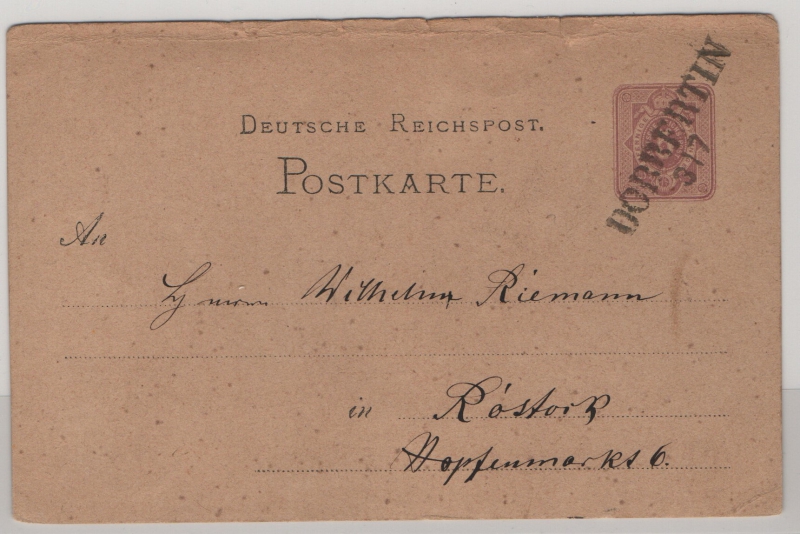 DEUTSCHE REICHSPOST.
POSTKARTE.
DOBBERTIN
3/7
An
Herrn Wilhelm Riemann
in Rostock
Hopfenmarkt 6.